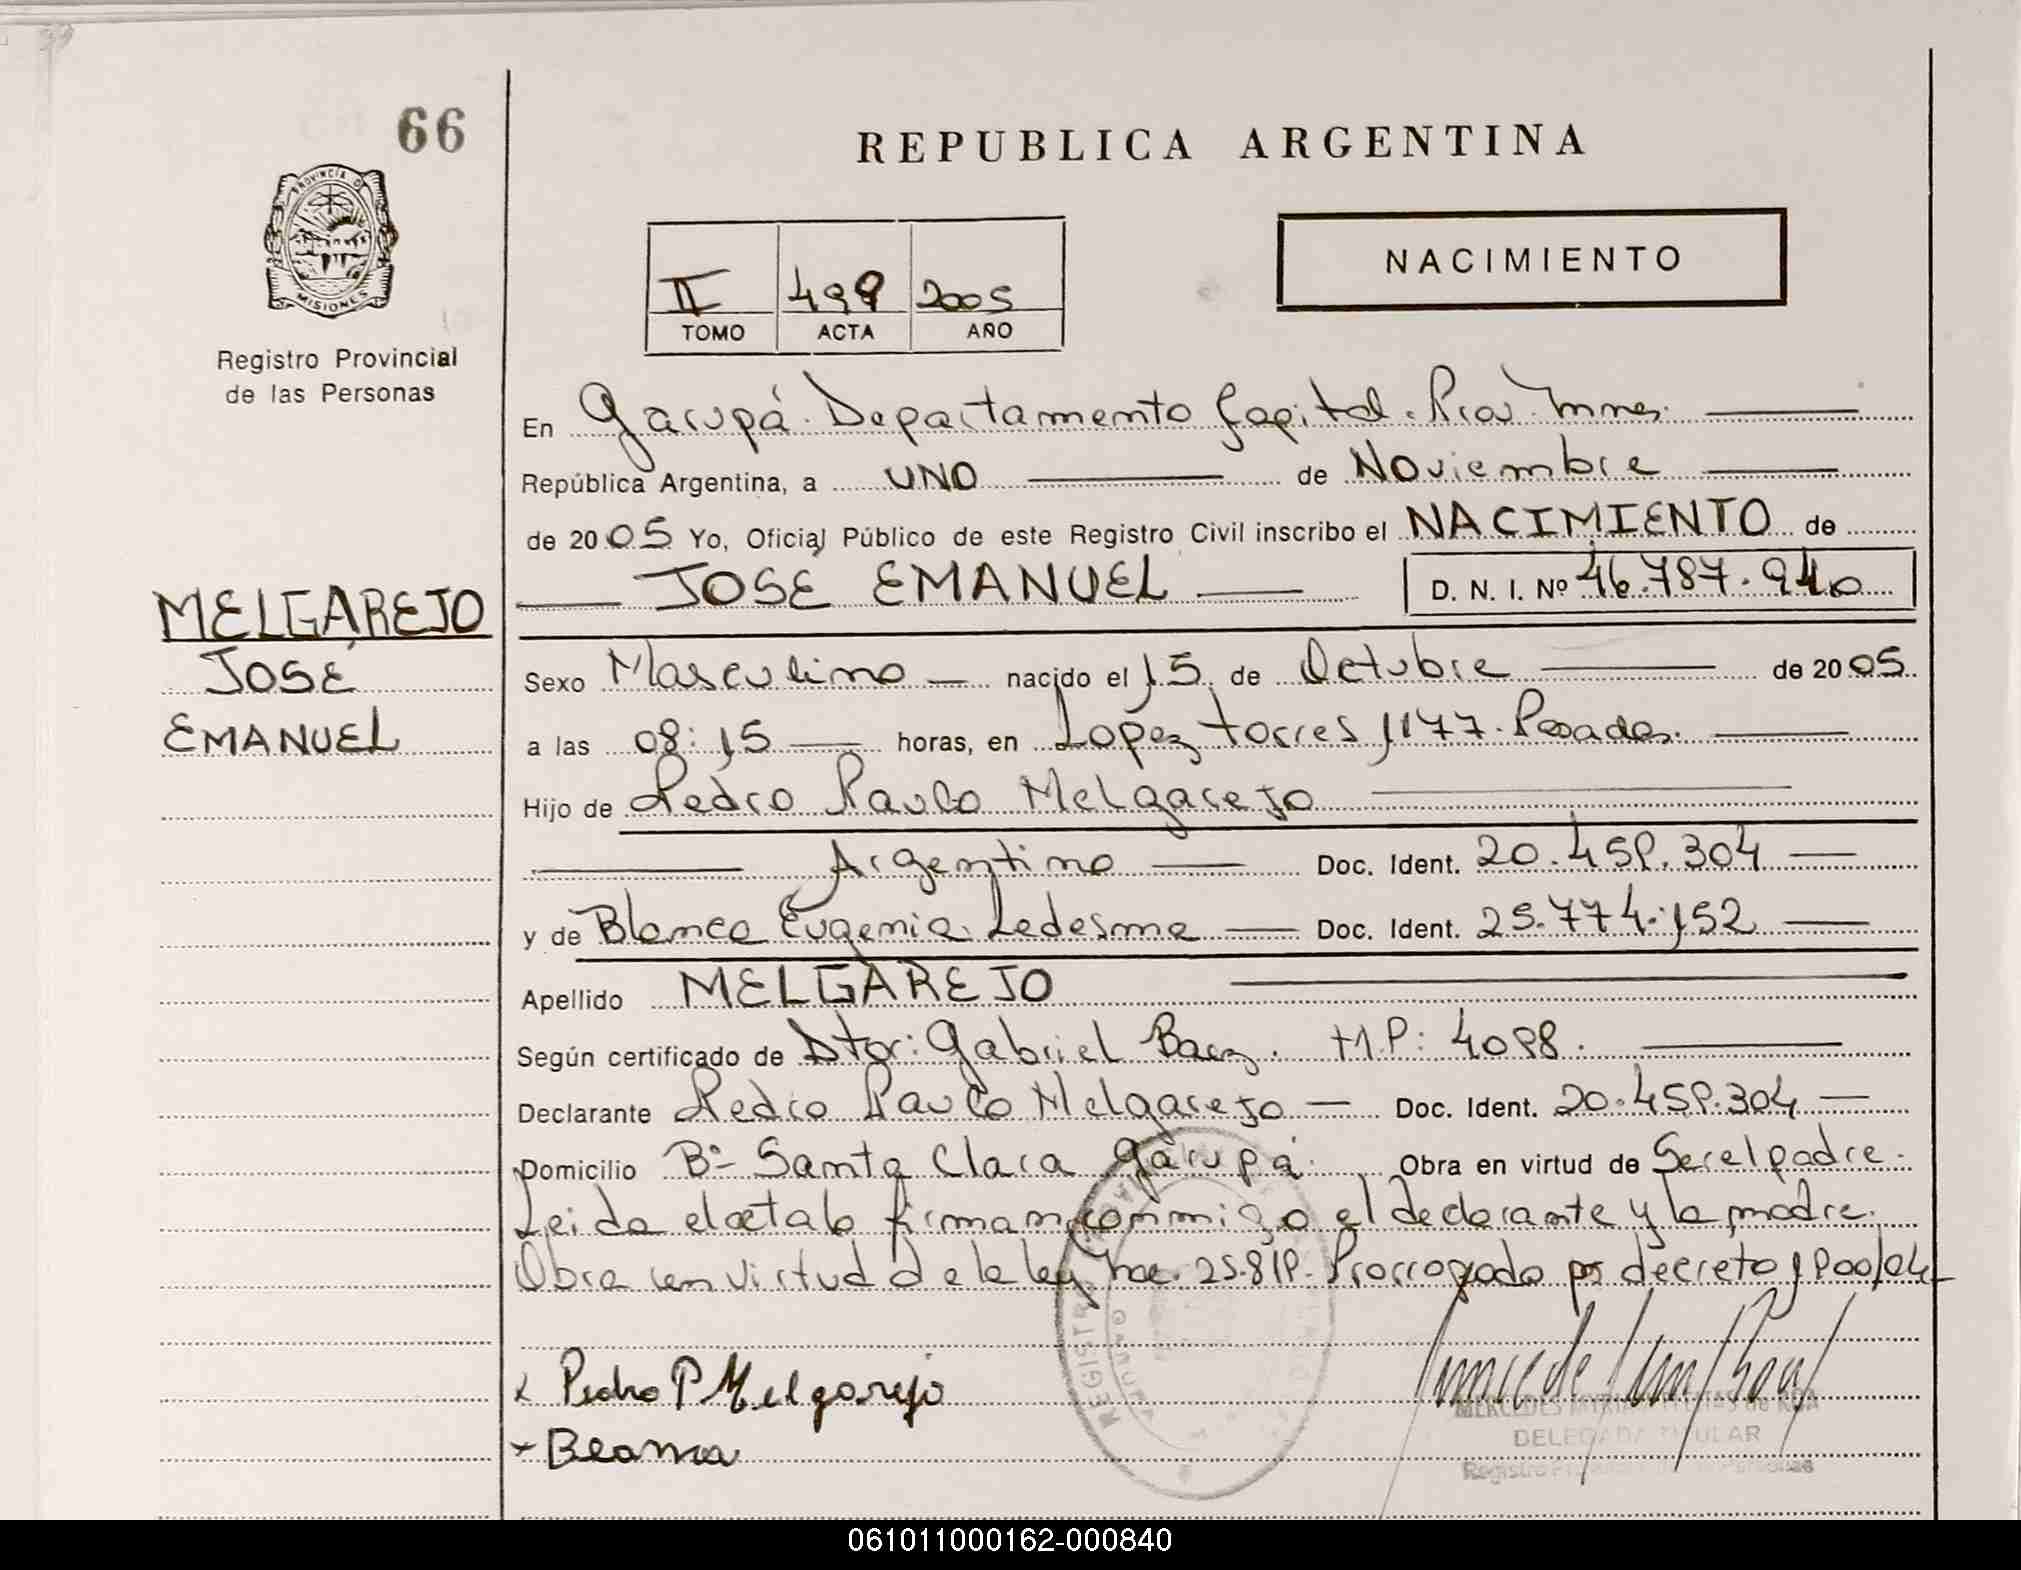 66
REPUBLICA ARGENTINA
PROVINCIA DE
MISIONES
Registro Provincial
de las Personas
NACIMIENTO
II 499 2005
TOMO ACTA AÑO
En Garupá. Departamento Capital. Prov. Mnes.
República Argentina, a UNO de Noviembre
de 2005 Yo, Oficial Público de este Registro Civil inscribo el NACIMIENTO de
JOSÉ EMANUEL D. N. I. Nº 46.787.940
MELGAREJO
JOSÉ
EMANUEL
Sexo Masculino nacido el 15 de Octubre de 2005
a las 08:15 horas, en Lopez torres 1177. Posadas.
Hijo de Pedro Paulo Melgarejo
Argentino Doc. Ident. 20.459.304
y de Blanca Eugenia Ledesma Doc. Ident. 25.774.152
Apellido MELGAREJO
Según certificado de Dtor: Gabriel Baez. M.P: 4098.
Declarante Pedro Paulo Melgarejo Doc. Ident. 20.459.304
Domicilio Bº Santa Clara Garupá. Obra en virtud de Ser el padre.
Leida el acta lo firman conmigo el declarante y la madre.
Obra en virtud de la ley Nac. 25.819. Prorrogada por decreto 1900/04
x Pedro P Melgarejo
x Beanca
MERCEDES de ROA
DELEGADA TITULAR
Registro Personas
061011000162-000840